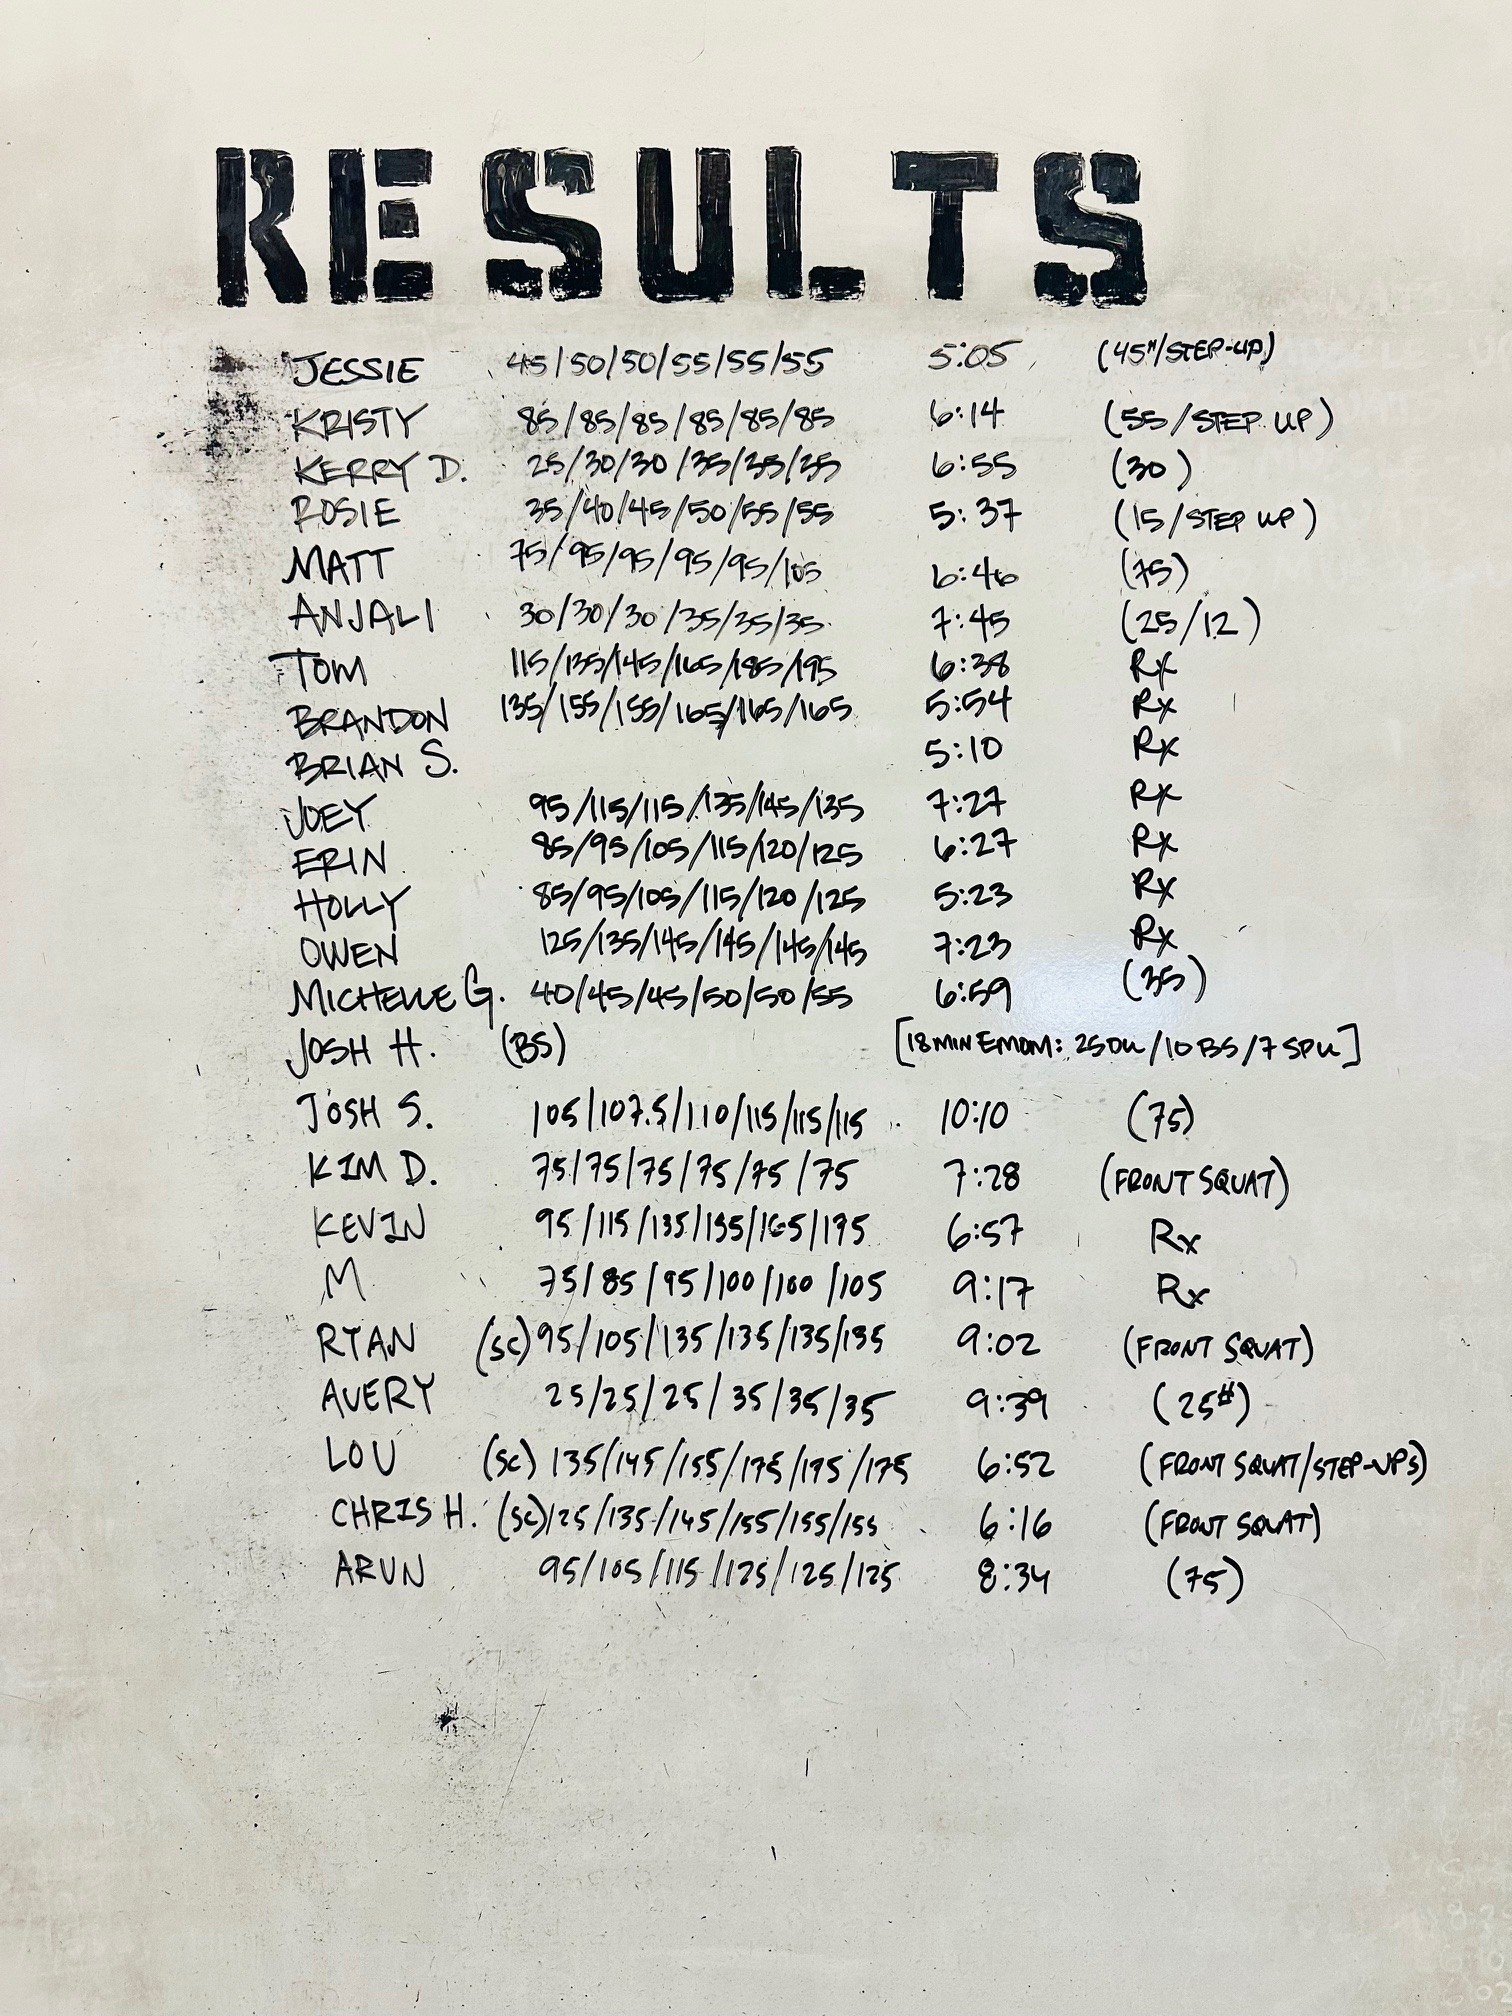 RESULTS
JESSIE 45/50/50/55/55/55 5:05 (45#/STEP-UP)
KRISTY 85/85/85/85/85/85 6:14 (55/STEP UP)
KERRY D. 25/30/30/35/35/35 6:55 (30)
ROSIE 35/40/45/50/55/55 5:37 (15/STEP UP)
MATT 75/95/95/95/95/105 6:46 (75)
ANJALI 30/30/30/35/35/35 7:45 (25/12)
TOM 115/135/145/165/185/195 6:38 Rx
BRANDON 135/155/155/165/165/165 5:54 Rx
BRIAN S. 5:10 Rx
JOEY 95/115/115/135/145/135 7:27 Rx
ERIN 85/95/105/115/120/125 6:27 Rx
HOLLY 85/95/105/115/120/125 5:23 Rx
OWEN 125/135/145/145/145/145 7:23 Rx
MICHELLE G. 40/45/45/50/50/55 6:59 (35)
JOSH H. (BS) [18 MIN EMOM: 25DU/10 BS/7 SPU]
JOSH S. 105/107.5/110/115/115/115 10:10 (75)
KIM D. 75/75/75/75/75/75 7:28 (FRONT SQUAT)
KEVIN 95/115/135/155/165/175 6:57 Rx
M 75/85/95/100/100/105 9:17 Rx
RYAN (SC) 95/105/135/135/135/135 9:02 (FRONT SQUAT)
AVERY 25/25/25/35/35/35 9:39 (25#)
LOU (SC) 135/145/155/175/175/175 6:52 (FRONT SQUAT/STEP-UPS)
CHRIS H. (SC) 125/135/145/155/155/155 6:16 (FRONT SQUAT)
ARUN 95/105/115/125/125/125 8:34 (75)